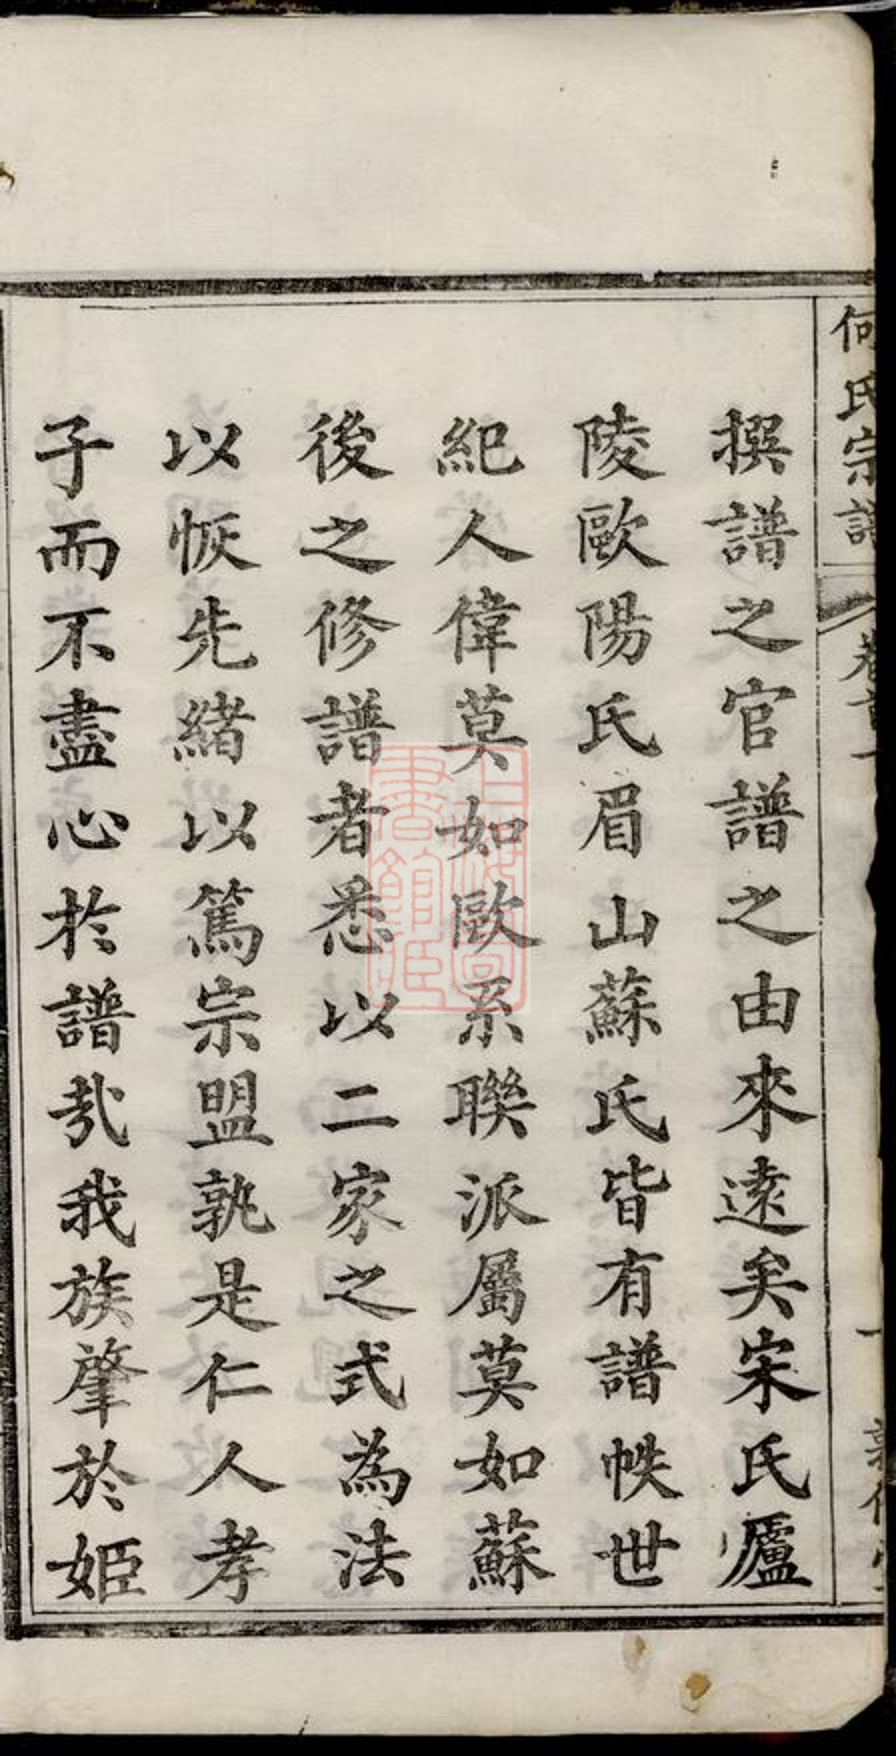 何氏宗譜
卷首
撰譜之官譜之由來遠矣宋氏廬
陵歐陽氏眉山蘇氏皆有譜帙世
紀人偉莫如歐系聯派屬莫如蘇
後之修譜者悉以二家之式為法
以恢先緒以篤宗盟孰是仁人孝
子而不盡心於譜哉我族肇於姬